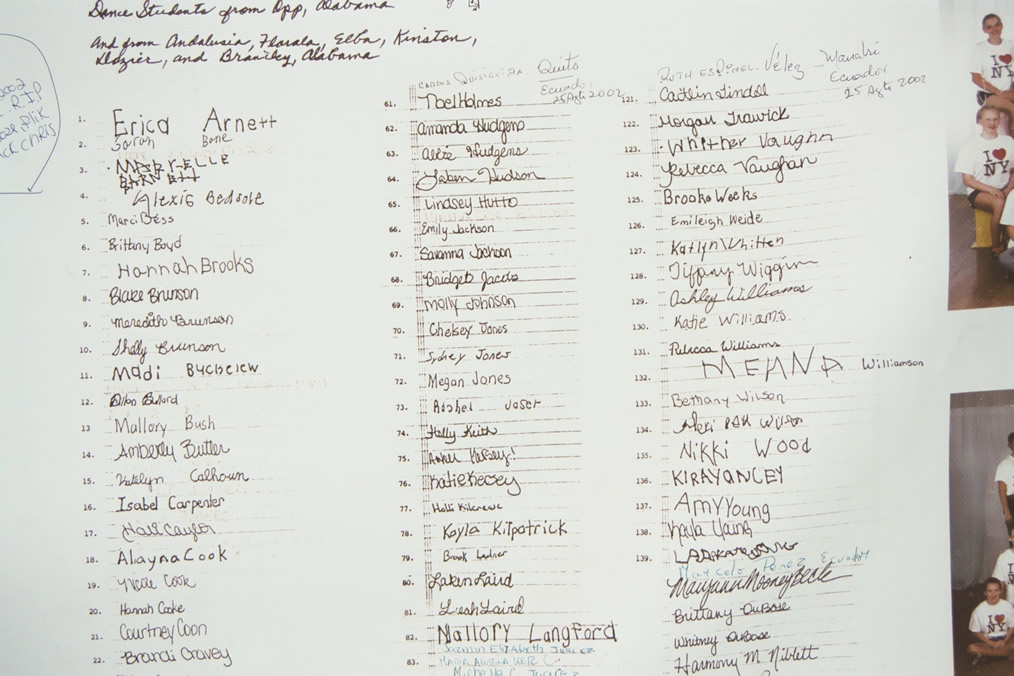 Dance Students from Opp, Alabama
And from Andalusia, Florala, Elba, Kinston,
Dozier, and Brantley, Alabama
2002
RIP
CHRIS
1. Erica Arnett
2. Sarah Bone
3. MARY-ELLE
BARNETT
4. Alexis Bedsole
5. Marci Bess
6. Brittany Boyd
7. Hannah Brooks
8. Blake Brunson
9. Meredith Brunson
10. Shelly Brunson
11. Madi Buchelew
12.
13 Mallory Bush
14. Amberly Butler
15. Katelyn Calhoun
16. Isabel Carpenter
17.
18. Alayna Cook
19. Nicole Cook
20. Hannah Cooke
21. Courtney Coon
22. Brandi Cravey
Quito
Ecuador
25 Agto 2002
61. Noel Holmes
62. Amanda Hudgens
63. Allie Hudgens
64. Hudson
65. Lindsey Hutto
66. Emily Jackson
67. Savanna Jackson
68. Bridgett Jacobs
69. Molly Johnson
70. Chelsey Jones
71. Sydney Jones
72. Megan Jones
73. Rachel
74. Holly Keith
75.
76. Katie Kelsey
77.
78. Kayla Kilpatrick
79. Brook
80. Laken Laird
81. Leah Laird
82. Mallory Langford
83.
RUTH ESPINEL. Vélez - Wanabí
Ecuador
25 Agto 2002
121. Caitlin Tindoll
122. Morgan Trawick
123. Whitney Vaughn
124. Rebecca Vaughan
125. Brooke Weeks
126. Emileigh Weide
127. Katlyn Whitten
128. Tiffany Wiggins
129. Ashley Williams
130. Katie Williams
131. Rebecca Williams
132. MEANA Williamson
133. Bethany Wilson
134. Wilson
135. Nikki Wood
136. KIRA YANCEY
137. Amy Young
138. Kayla Young
139.
Marcelo Perez Ecuador
Maryann Mooney Beck
Brittany DuBose
Whitney DuBose
Harmony M Niblett
I NY
I NY
I NY